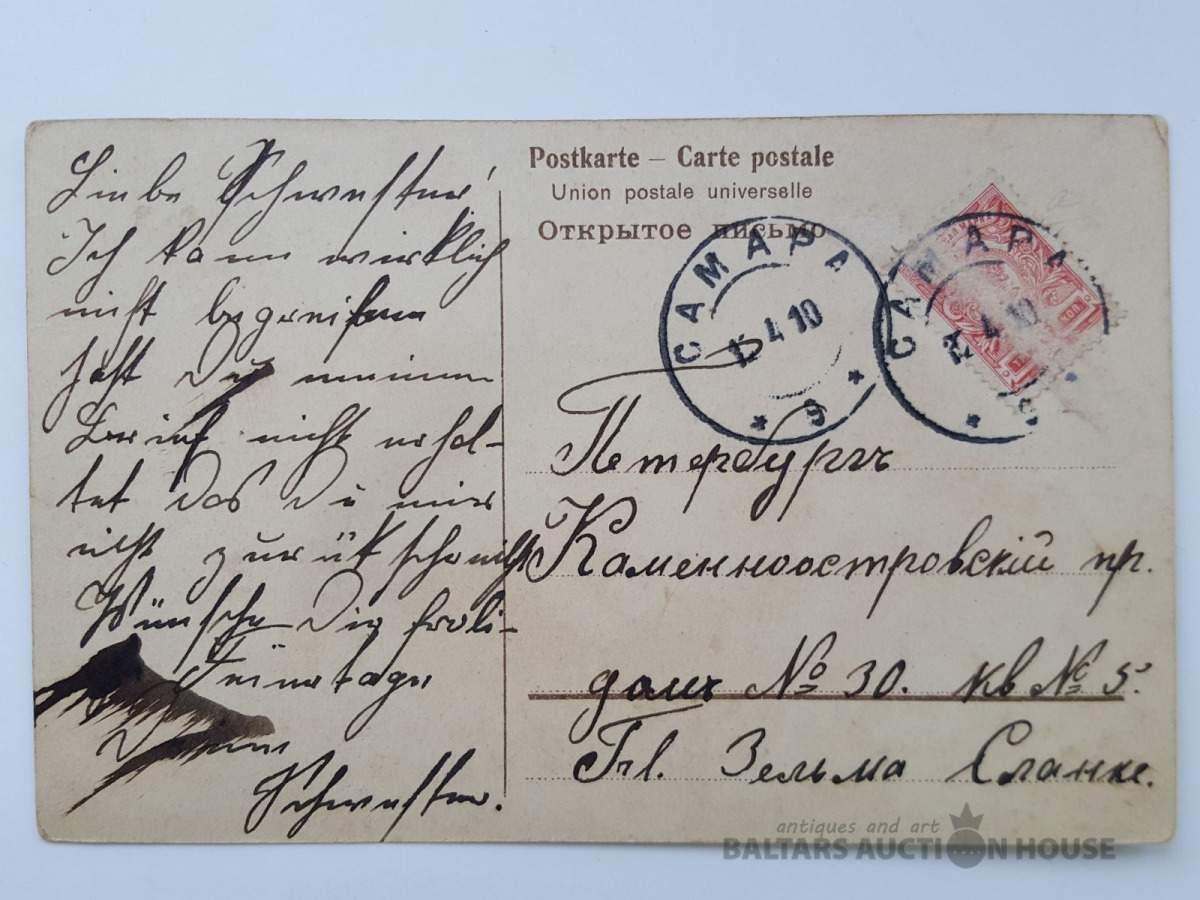 Liebe Schwester!
Ich kann wirklich
nicht begreifen
hast Du meinen
Brief nicht erhal-
tet das Du mir
nicht zurük schreibst
Wünsche Dig froli-
Feiertage
Deine
Schwester.
Postkarte – Carte postale
Union postale universelle
Открытое письмо
САМАРА
4 10
* 9 *
САМАРА
12 4 10
* 9
Петербургъ
Каменноостровскій пр.
домъ № 30. кв № 5.
Зельма Сланке.
antiques and art
BALTARS AUCTION HOUSE